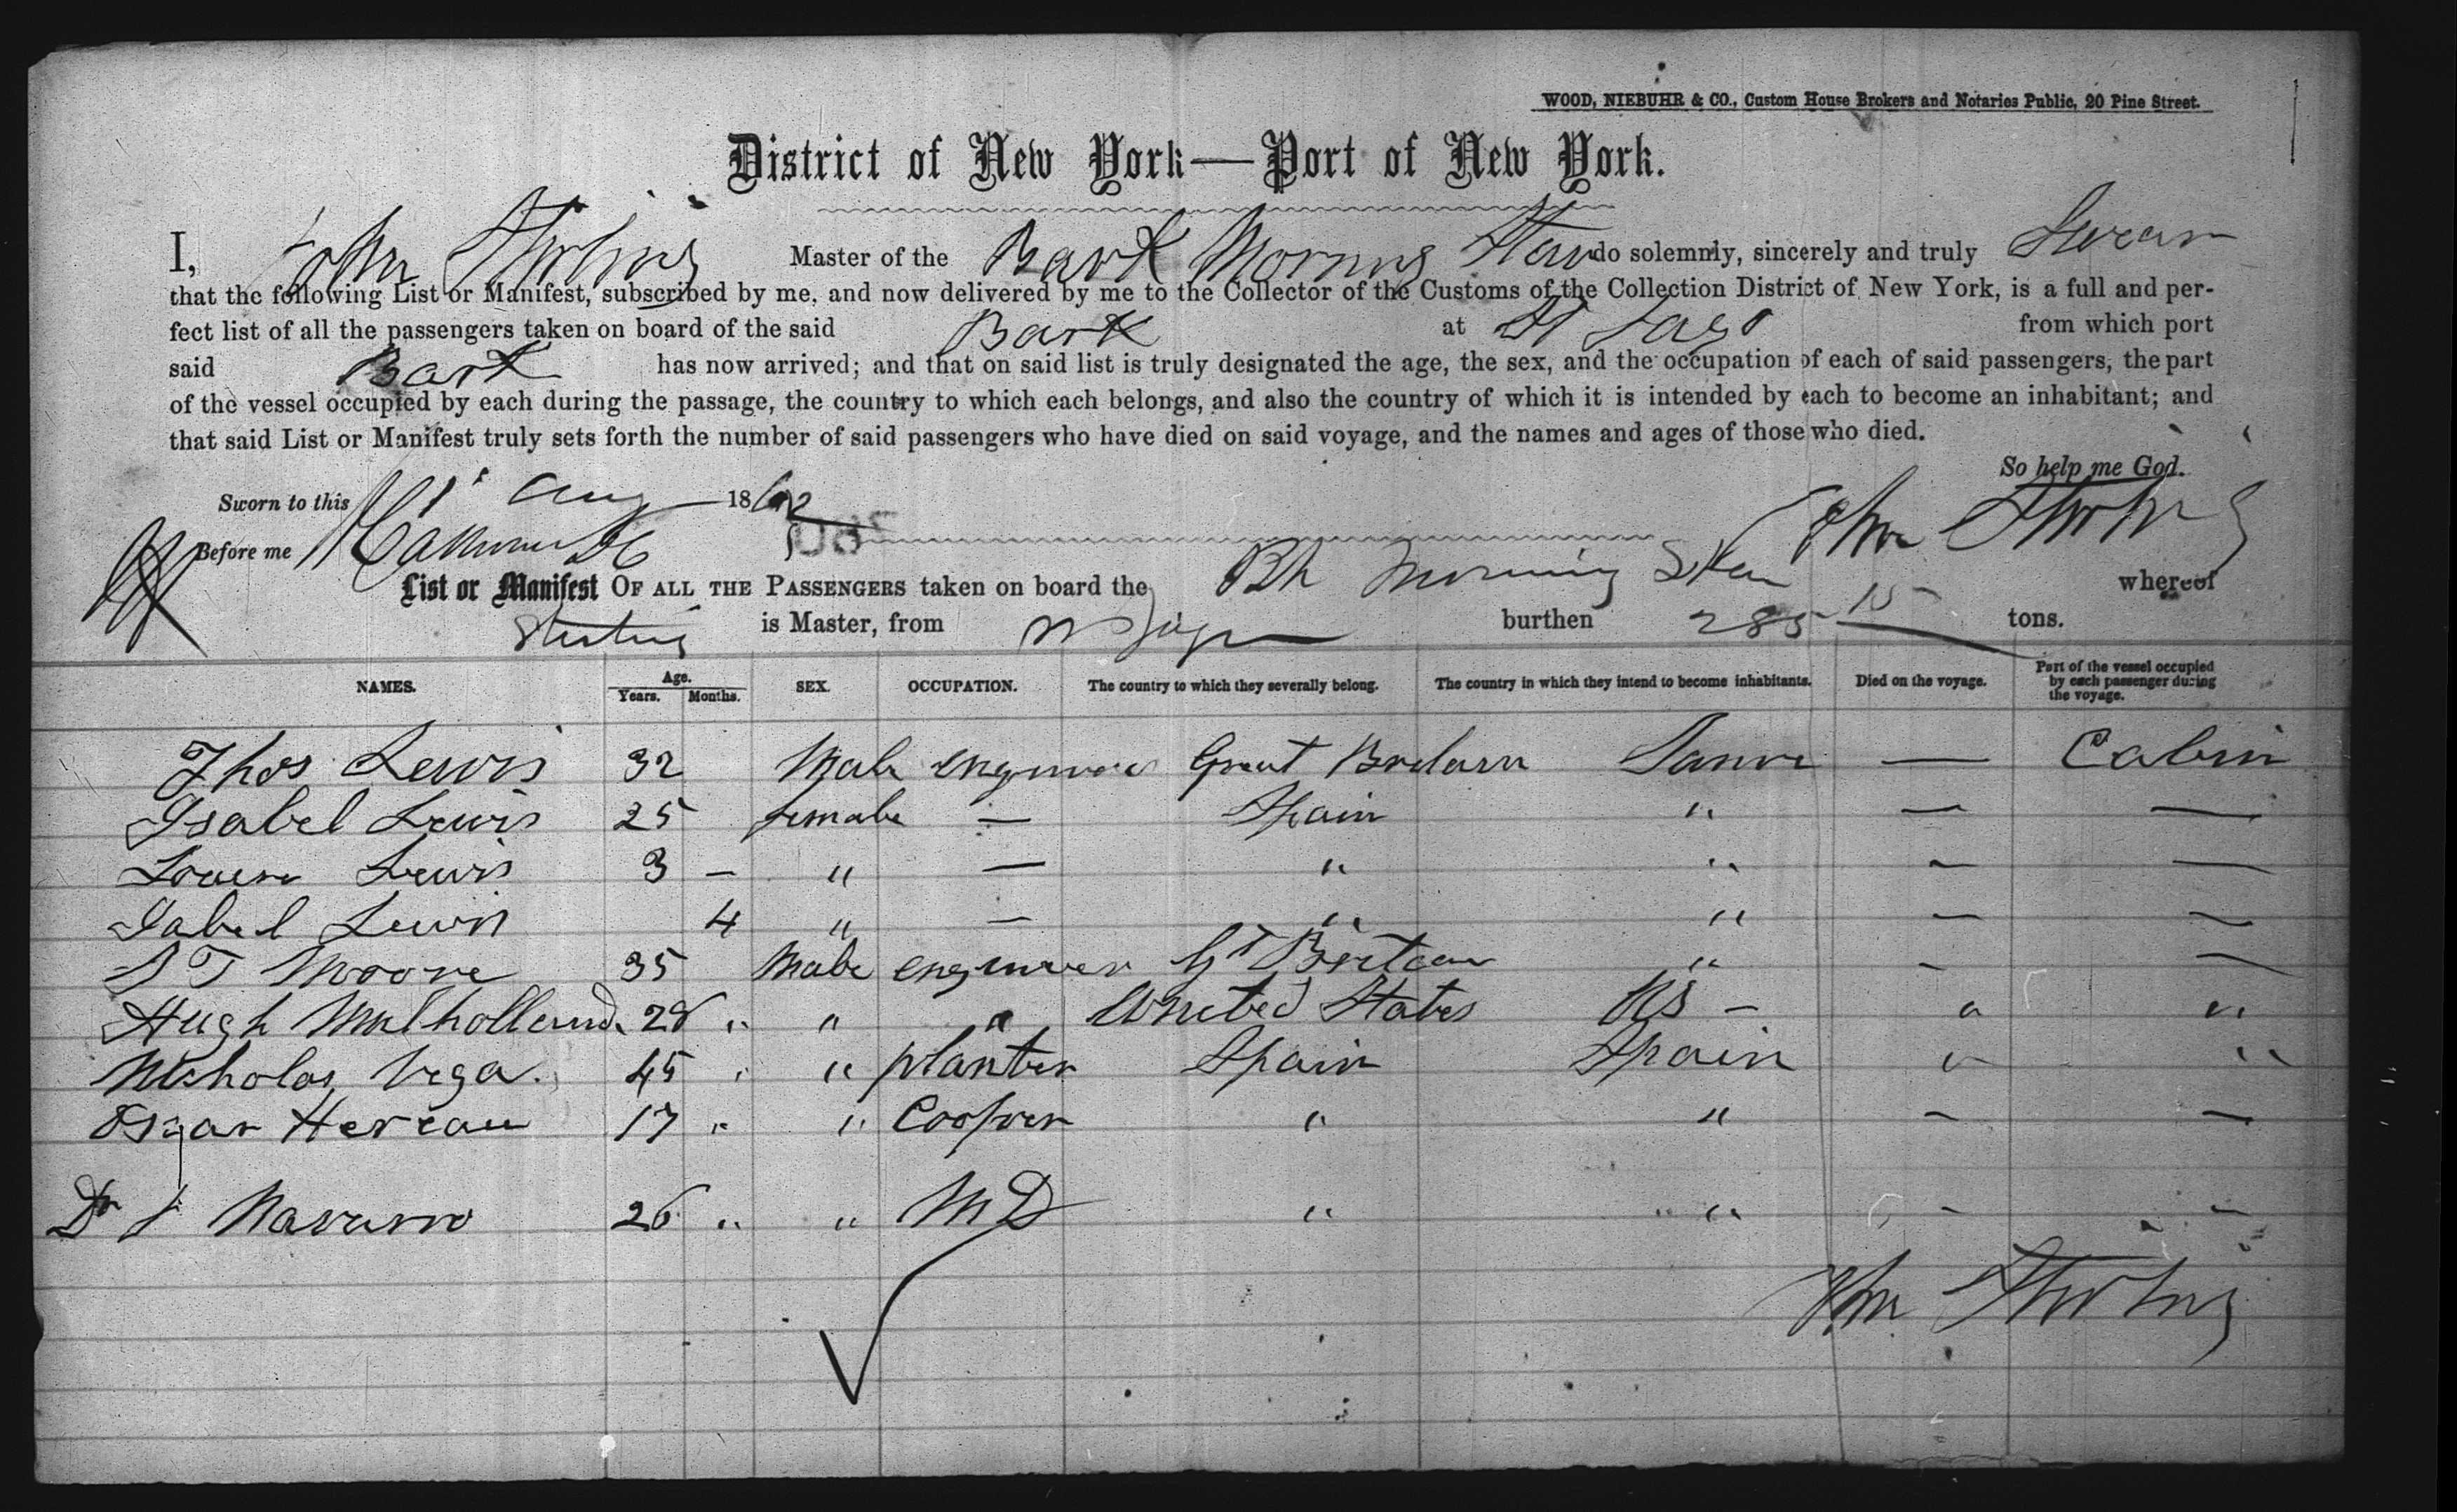 WOOD, NIEBUHR & CO., Custom House Brokers and Notaries Public, 20 Pine Street.
District of New York—Port of New York.
I, John Stirling Master of the Bark Morning Star do solemnly, sincerely and truly Swear
that the following List or Manifest, subscribed by me, and now delivered by me to the Collector of the Customs of the Collection District of New York, is a full and per-
fect list of all the passengers taken on board of the said Bark at St Jago from which port
said Bark has now arrived; and that on said list is truly designated the age, the sex, and the occupation of each of said passengers, the part
of the vessel occupied by each during the passage, the country to which each belongs, and also the country of which it is intended by each to become an inhabitant; and
that said List or Manifest truly sets forth the number of said passengers who have died on said voyage, and the names and ages of those who died.
So help me God.
Sworn to this 1 Aug 1862
Before me John Stirling
List or Manifest OF ALL THE PASSENGERS taken on board the Bk Morning Star whereof
Stirling is Master, from burthen 285 15 tons.
NAMES. Age. Years. Months. SEX. OCCUPATION. The country to which they severally belong. The country in which they intend to become inhabitants. Died on the voyage. Part of the vessel occupied by each passenger during the voyage.
Thos Lewis 32 Male engineer Great Britain Same — Cabin
Isabel Lewis 25 female — Spain " — —
Louisa Lewis 3 – " — " " – —
Isabel Lewis 4 " – " " – –
Moore 35 Male engineer Gt Britain " – –
Hugh Mulholland. 28 " " " United States US – " "
Nicholas Vega. 45 " " planter Spain Spain " "
Oscar Hereau 17 " " Cooper " " – –
Dr J Navarro 26 " " MD " " – –
John Stirling